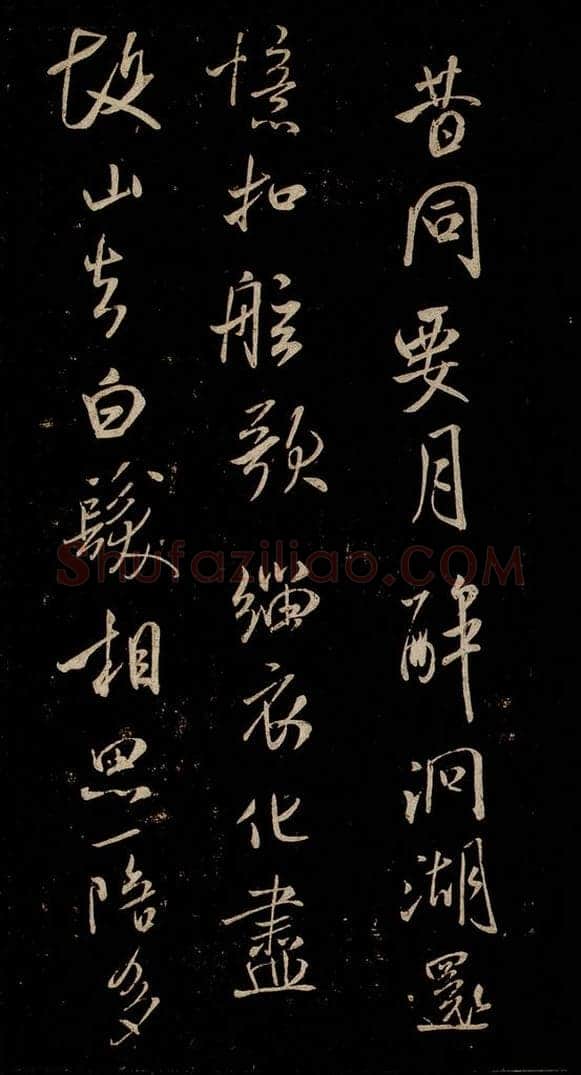 昔同要月醉洞湖還
憶扣舷歌緇衣化盡
故山去白髮相思一陪多
Shufaziliao.COM